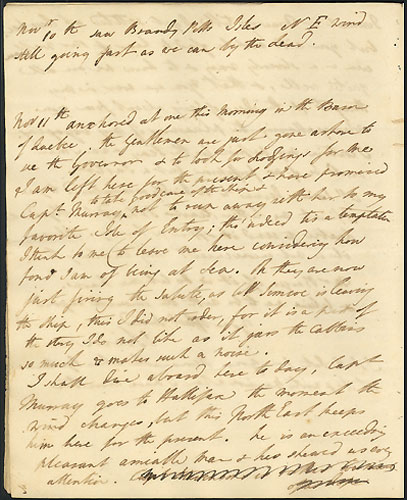 Novr 10th saw Brandy Potts Isles N E wind
still going fast as we can by the lead.
Nov 11th anchored at one this Morning in the Bason
of Quebec, the Gentlemen are just gone ashore to
see the Governor & to look for Lodgings for me
I am left here for the present & have promised
to take good care of the Ship &
Capt. Murray not to run away with her to my
favorite Isle of Entry, tho' indeed tis a temptation
I think to me (to leave me here considering how
fond I am of being at Sea. Oh they are now
just firing the Salute, as Coll Simcoe is leaving
the Ship, this I did not order, for it is a part of
the thing I do not like as it jars the Cabbins
so much & makes such a noise.
I shall dine aboard here to day, Capt
Murray goes to Hallifax the moment the
wind changes, but this North East keeps
him here for the present. he is an exceeding
pleasant amiable man & has shewed us every
attention.